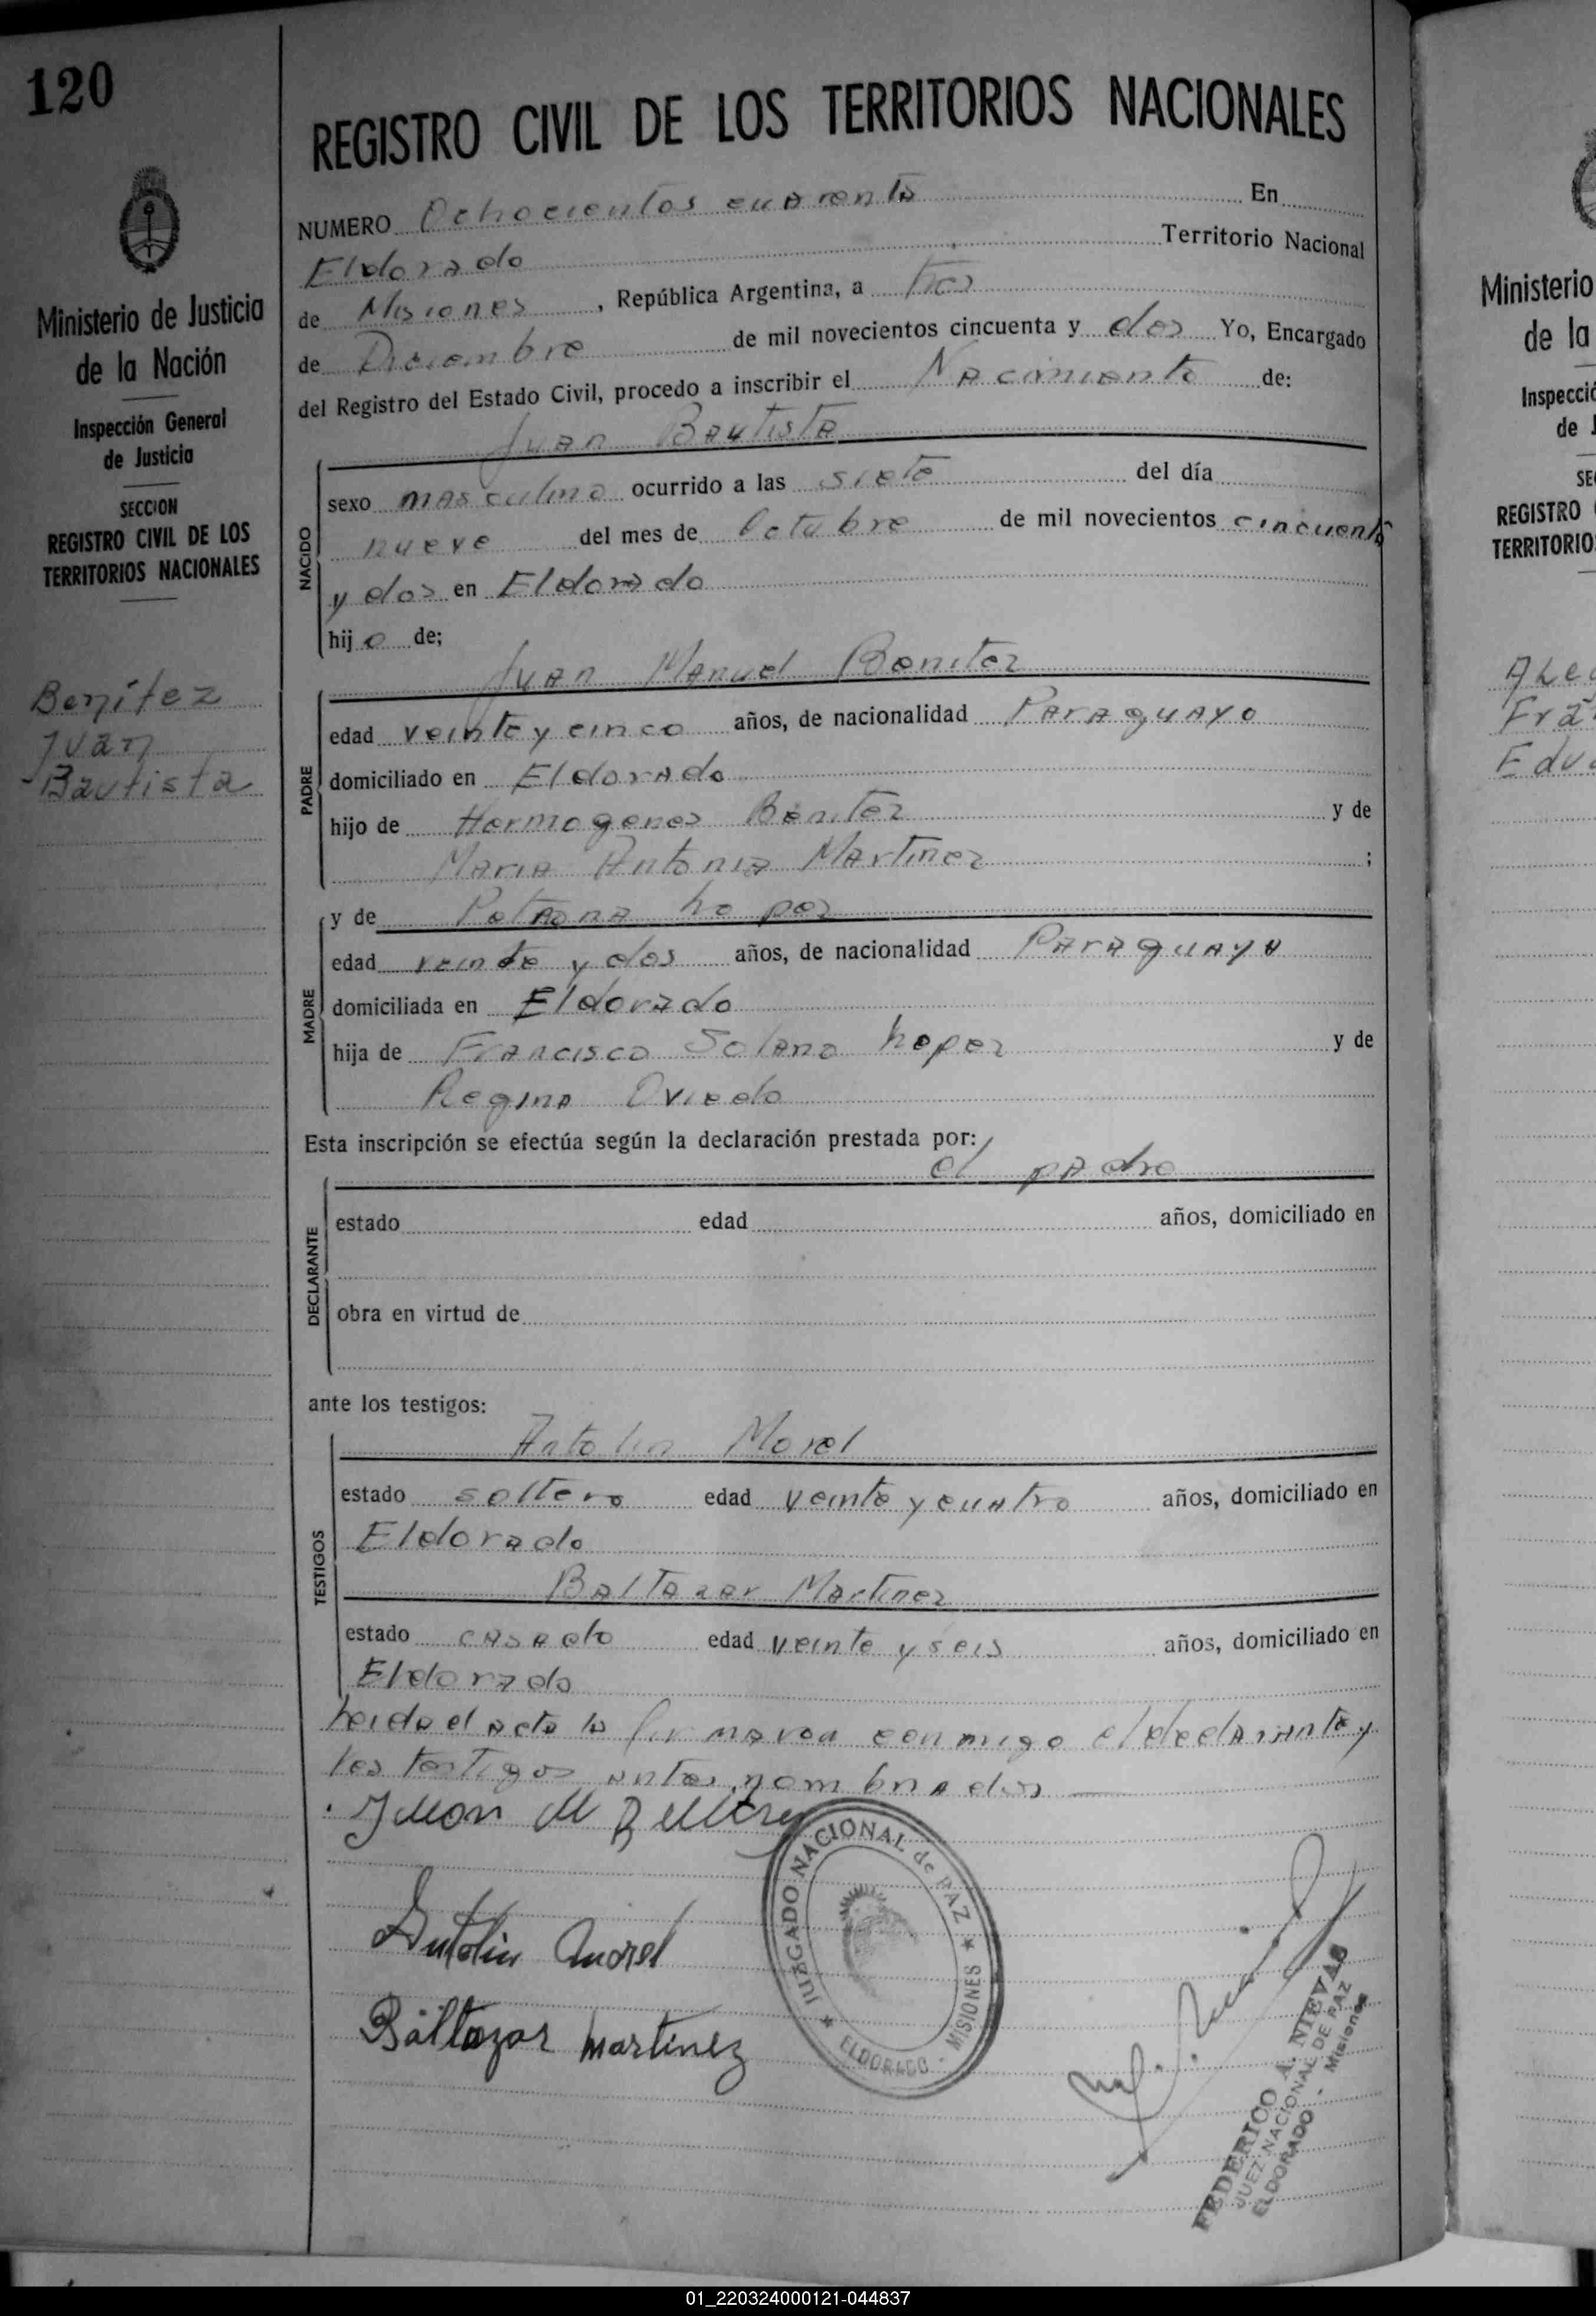 120
REGISTRO CIVIL DE LOS TERRITORIOS NACIONALES
NUMERO Ochocientos cuarenta En
Eldorado Territorio Nacional
de Misiones, República Argentina, a tres
de Diciembre de mil novecientos cincuenta y dos Yo, Encargado
del Registro del Estado Civil, procedo a inscribir el Nacimiento de:
Juan Bautista
NACIDO
sexo masculino ocurrido a las siete del día
nueve del mes de Octubre de mil novecientos cincuenta
y dos en Eldorado
hijo de;
Juan Manuel Benitez
PADRE
edad veinte y cinco años, de nacionalidad Paraguayo
domiciliado en Eldorado
hijo de Hermogenes Benitez y de
Maria Antonia Martinez ;
MADRE
y de Petrona Lopez
edad veinte y dos años, de nacionalidad Paraguaya
domiciliada en Eldorado
hija de Francisco Solano Lopez y de
Regina Oviedo
Esta inscripción se efectúa según la declaración prestada por:
el padre
DECLARANTE
estado edad años, domiciliado en
obra en virtud de
ante los testigos:
TESTIGOS
Antolin Morel
estado soltero edad veinte y cuatro años, domiciliado en
Eldorado
Baltazar Martinez
estado casado edad veinte y seis años, domiciliado en
Eldorado
Leida el acta la firmaron conmigo el declarante y
los testigos antes nombrados
Juan M Benitez
Antolin Morel
Baltazar Martinez
JUZGADO NACIONAL de PAZ
ELDORADO - MISIONES
FEDERICO A. NIEVAS
JUEZ NACIONAL DE PAZ
ELDORADO - Misiones
Ministerio de Justicia
de la Nación
Inspección General
de Justicia
SECCION
REGISTRO CIVIL DE LOS
TERRITORIOS NACIONALES
Benítez
Juan
Bautista
Ministerio
de la
Inspecció
de J
SE
REGISTRO
TERRITORIO
Fra
Edu
01_220324000121-044837